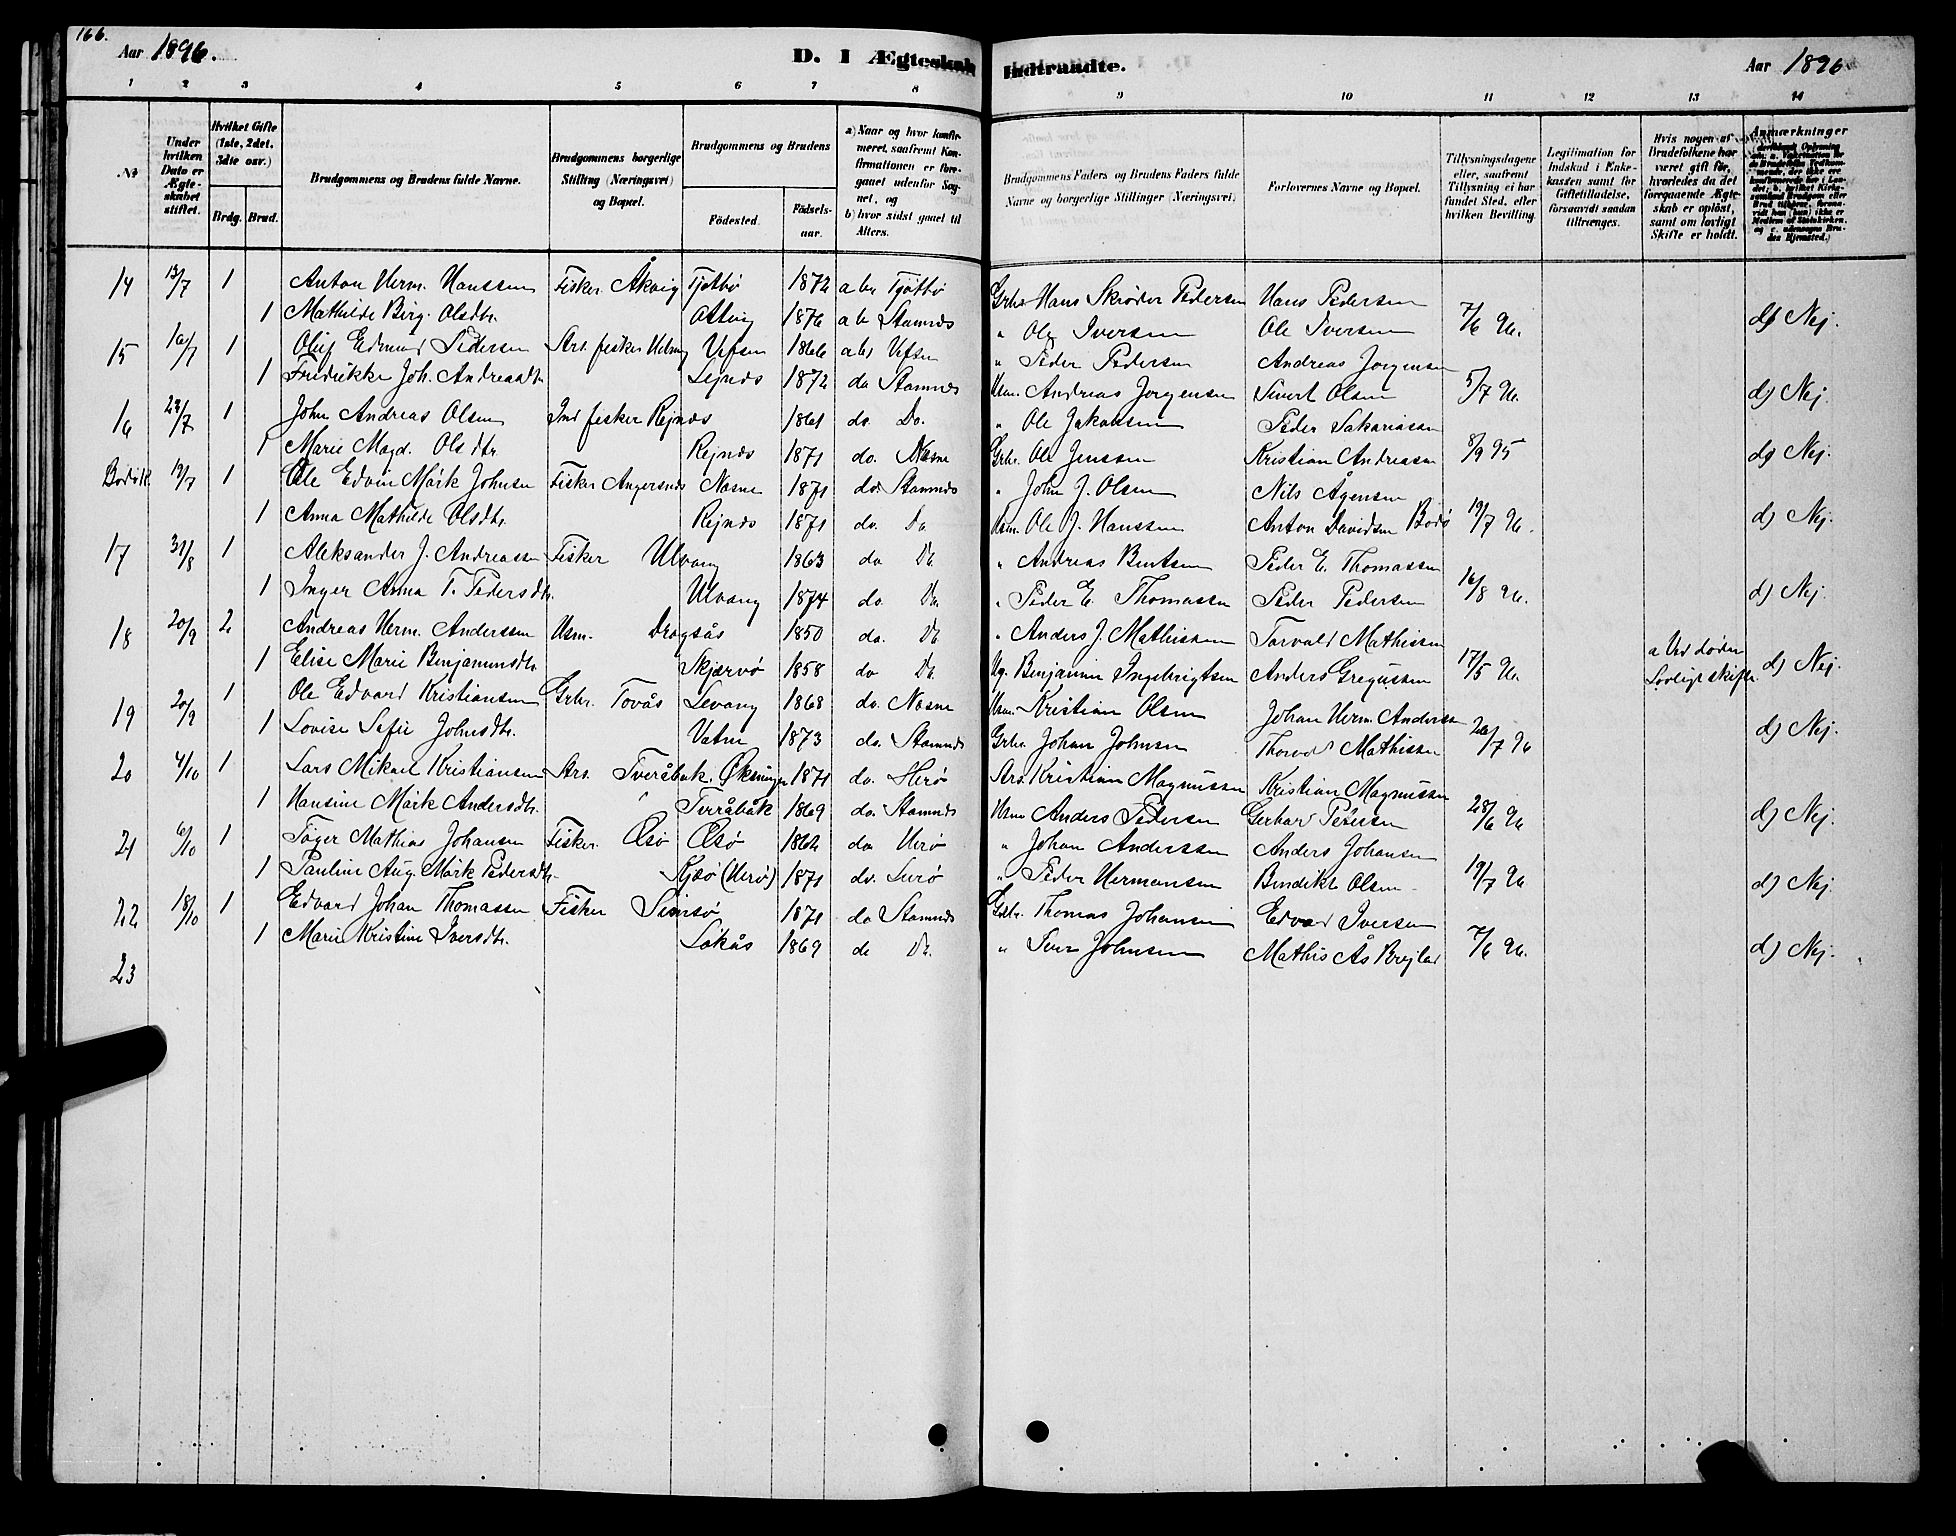 166.
Aar 1896. D. I Ægteskab Indtraadte. Aar 1896
1 2 3 4 5 6 7 8 9 10 11 12 13 14
No
Under hvilken Dato er Ægteskabet stiftet.
Hvilket Gifte (1ste, 2det, 3die osv.)
Brdg. Brud.
Brudgommens og Brudens fulde Navne.
Brudgommens borgerlige Stilling (Næringsvei) og Bopæl.
Brudgommens og Brudens
Fødested. Fødselsaar.
a) Naar og hvor konfirmeret, saafremt Konfirmationen er foregaaet udenfor Sognet, og
b) hvor sidst gaaet til Alters.
Brudgommens Faders og Brudens Faders fulde Navne og borgerlige Stillinger (Næringsvei)
Forlovernes Navne og Bopæl.
Tillysningsdagene eller, saafremt Tillysning ei har fundet Sted, efter hvilken Bevilling.
Legitimation for Indskud i Enkekassen samt for Giftetilladelse, forsaavidt saadan tiltrænges.
Hvis nogen af Brudefolkene har været gift før, hvorledes da det foregaaende Ægteskab er opløst, samt om lovligt Skifte er holdt.
Anmærkninger
14 13/7 1 Anton Herm. Hanssen Fisker Åkvig Tjøttø 1872 Tjøttø Grbr Hans Skrøder Pedersen Hans Pedersen 7/6 96. d) Nej.
1 Mathilde Birg. Olsdtr. 1876 Stamnes " Ole Iversen Ole Iversen
15 16/7 1 Oluf Edmund Pedersen Vefsen 1866 Vefsn " Peder Pedersen Andreas Jørgensen 5/7 96. d) Nej.
1 Fredrikke Joh. Andreasdtr. 1872 do Stamnes Hsm. Andreas Jørgensen Sivert Olsen
16 24/7 1 John Andreas Olsen Ind fisker Rejnes 1861 do. Do. " Ole Jakobsen Peder Sakariasen 8/9 95 d) Nej.
1 Marie Magd. Olsdtr. Rejnes 1871 do. Næsne Grbr. Ole Jenssen Kristian Andreasen
19/7 1 Ole Edvin Mørk Johnsen Fisker Angersnes Næsne 1871 do. Stamnes " John J. Olsen Nils Ågensen 19/7 96. d) Nej.
1 Anna Mathilde Olsdtr. Rejnes 1871 do. Do Hsm. Ole J. Hanssen Anton Davidsen Bodø
17 31/8 1 Aleksander J. Andreassen Fisker Ulvang 1863 do Do. " Andreas Bentsen Peder E. Thomassen 16/8 96. d) Nej.
1 Inger Anna T. Pedersdtr. Ulvang 1874 do. Do. " Peder E. Thomassen Peder Pedersen
18 20/9 2. Andreas Herm. Anderssen Hsm. Dragsås 1850 do. Do " Anders J. Mathissen Torvald Mathissen 17/5 96. a Ved døden Lovligt skifte. d) Nej.
1 Elise Marie Benjaminsdtr. Skjærvø 1858 do Do. Benjamin Ingebrigtsen Anders Gregussen
19 20/9 1 Ole Edvard Kristiansen Grbr. Tovås Levang 1868 do. Næsne Hsm. Kristian Olsen Johan Herm. Andersen 26/7 96 d) Nej.
1 Lovise Sofie Johnsdtr. 1873 do. Stamnes Grbr. Johan Johnsen Mathissen
20 4/10 1 Lars Mikael Kristiansen Tveråbak. Øksninge 1871 do. Herø Kristian Magnussen Kristian Magnussen 28/6 96 d) Nej.
1 Hansine Mørk Andersdtr. " Tveråbak 1869 do. Stamnes Hsm Anders Pedersen Gerhard Petersen
21 6/10 1 Tøger Mathias Johansen Fisker. Olsø Olsø 1862 do Herø " Johan Anderssen Anders Johansen 19/7 96 d) Nej.
1 Pauline Aug. Mørk Pedersdtr. (Herø) 1871 do. Lurø " Peder Hermansen Bendikt Olsen
22 18/10 1 Edvard Johan Thomassen Fisker 1871 do Stamnes Grbr. Thomas Johansen Edvard Iversen 7/6 96. d) Nej.
1 Marie Kristine Iversdtr. Løkås 1869 do Do. " Iver Johnsen Mathis Ås
23